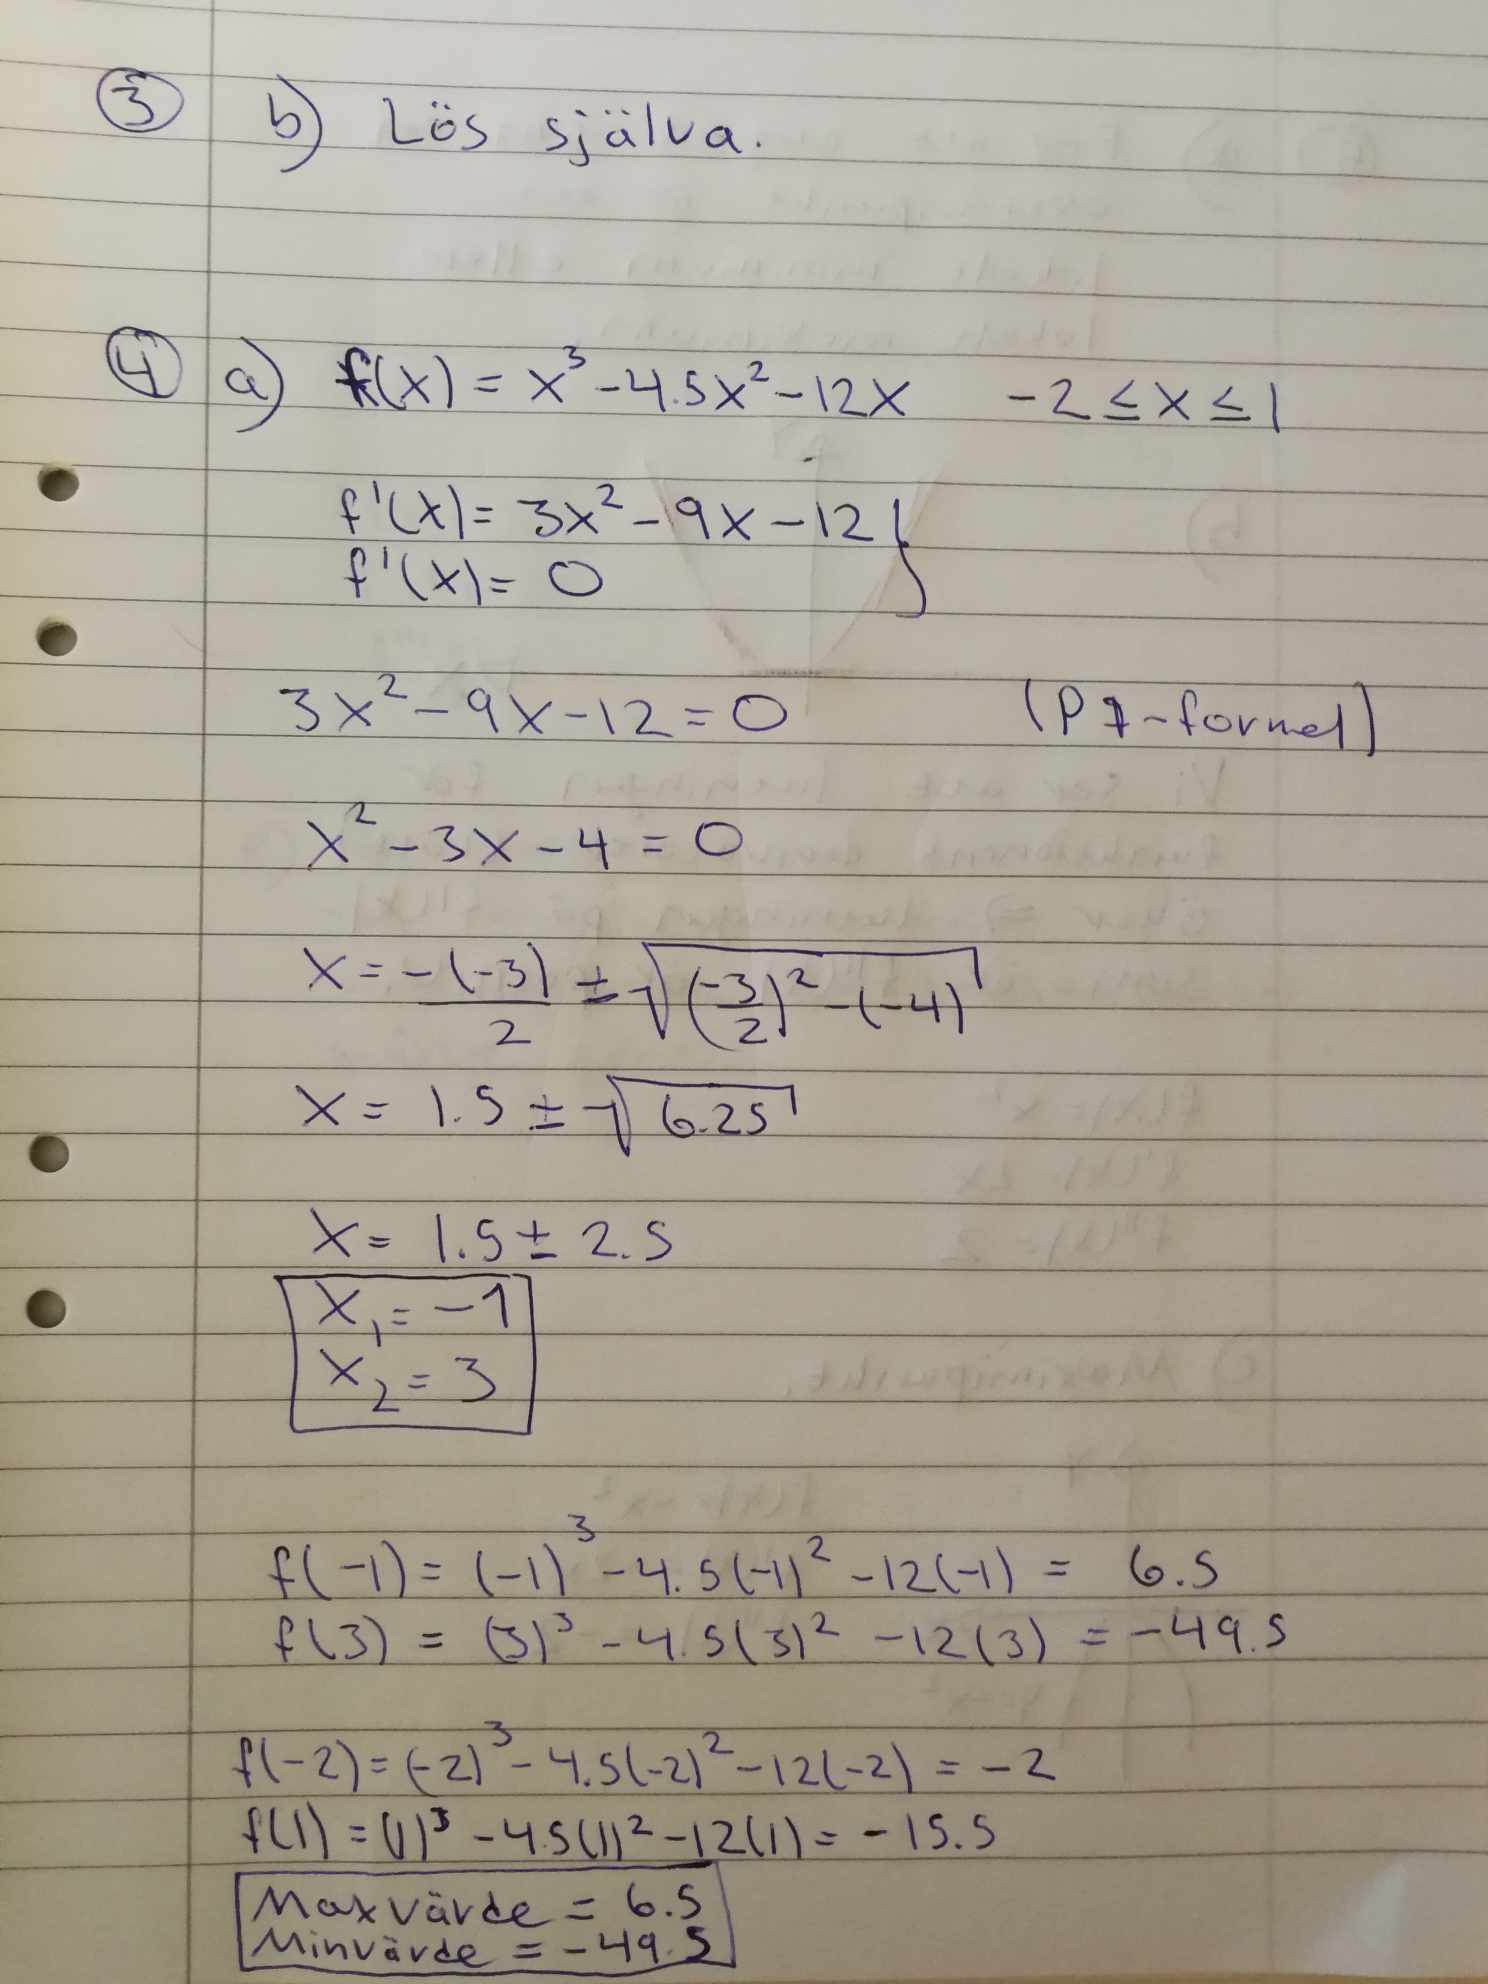 3 b) Lös själva.
4 a) f(x) = x³ - 4.5x² - 12x -2 ≤ x ≤ 1
f'(x) = 3x² - 9x - 12 }
f'(x) = 0
3x² - 9x - 12 = 0 (PQ-formel)
x² - 3x - 4 = 0
x = -(-3)/2 ± √((-3/2)² - (-4))
x = 1.5 ± √6.25
x = 1.5 ± 2.5
x₁ = -1
x₂ = 3
f(-1) = (-1)³ - 4.5(-1)² - 12(-1) = 6.5
f(3) = (3)³ - 4.5(3)² - 12(3) = -49.5
f(-2) = (-2)³ - 4.5(-2)² - 12(-2) = -2
f(1) = (1)³ - 4.5(1)² - 12(1) = -15.5
Maxvärde = 6.5
Minvärde = -49.5